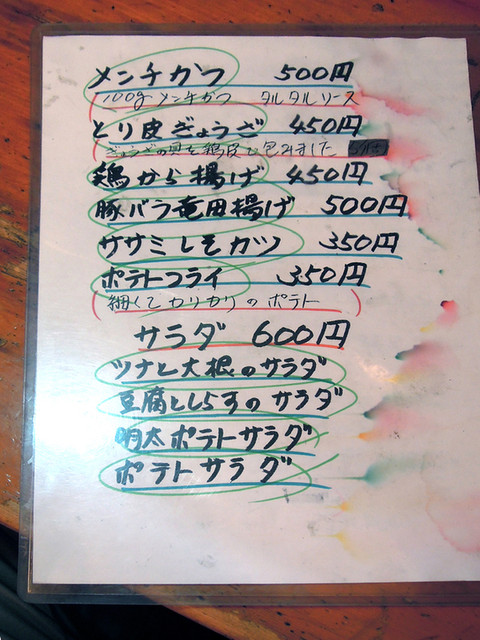 メンチかつ 500円
100g メンチかつ タルタルソース
とり皮ぎょうざ 450円
ぎょうざの具を鶏皮で包みました
鶏から揚げ 450円
豚バラ竜田揚げ 500円
ササミしそカツ 350円
ポテトフライ 350円
(細くてカリカリのポテト)
サラダ 600円
ツナと大根のサラダ
豆腐としらすのサラダ
明太ポテトサラダ
ポテトサラダ